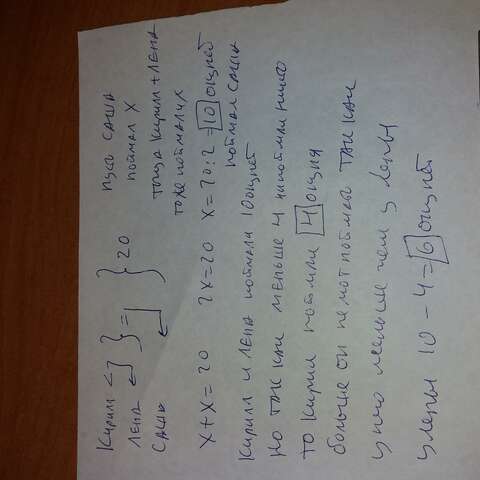 Кирилл <
Лена } = } 20
Саша
пусть Саша
поймал x
тогда Кирилл + Лена
тоже поймали x
x + x = 20 2x = 20 x = 20 : 2 = 10 окуней
поймал Саша
Кирилл и Лена поймали 10 окуней
но так как меньше 4 никто
то Кирилл поймал 4 окуня
больше он не мог поймать так как
у него меньше чем у Лены
у Лены 10 - 4 = 6 окуней